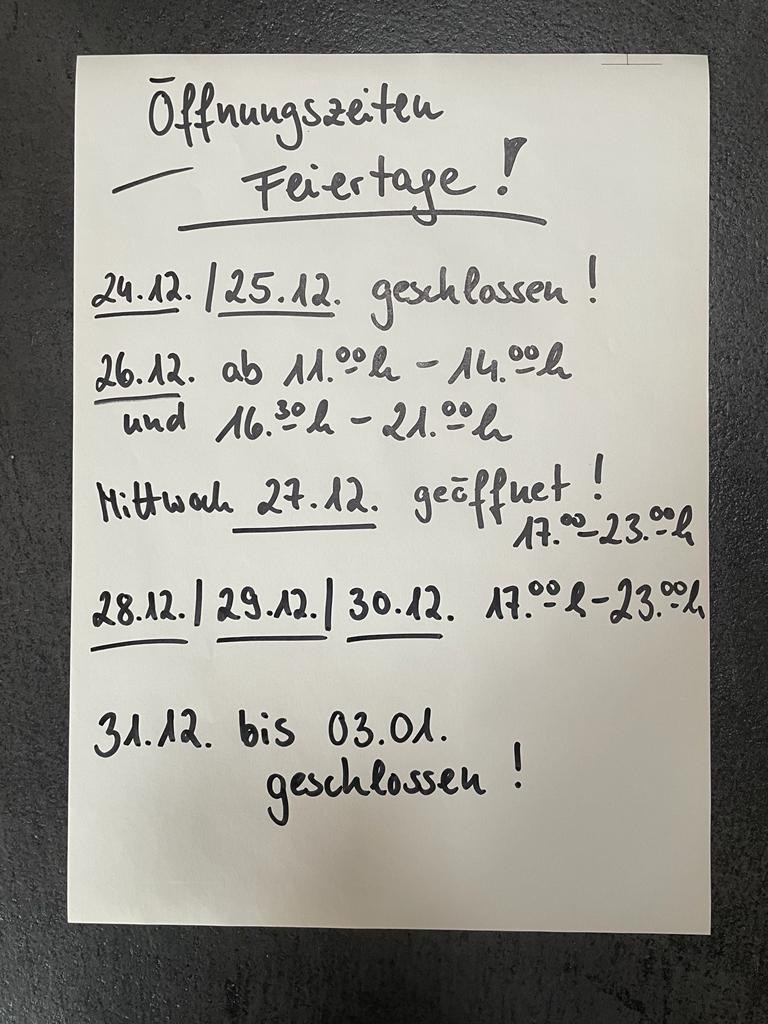 Öffnungszeiten
— Feiertage!
24.12. / 25.12. geschlossen!
26.12. ab 11.00h - 14.00h
und 16.30h - 21.00h
Mittwoch 27.12. geöffnet!
17.00-23.00h
28.12. / 29.12. / 30.12. 17.00h-23.00h
31.12. bis 03.01.
geschlossen!